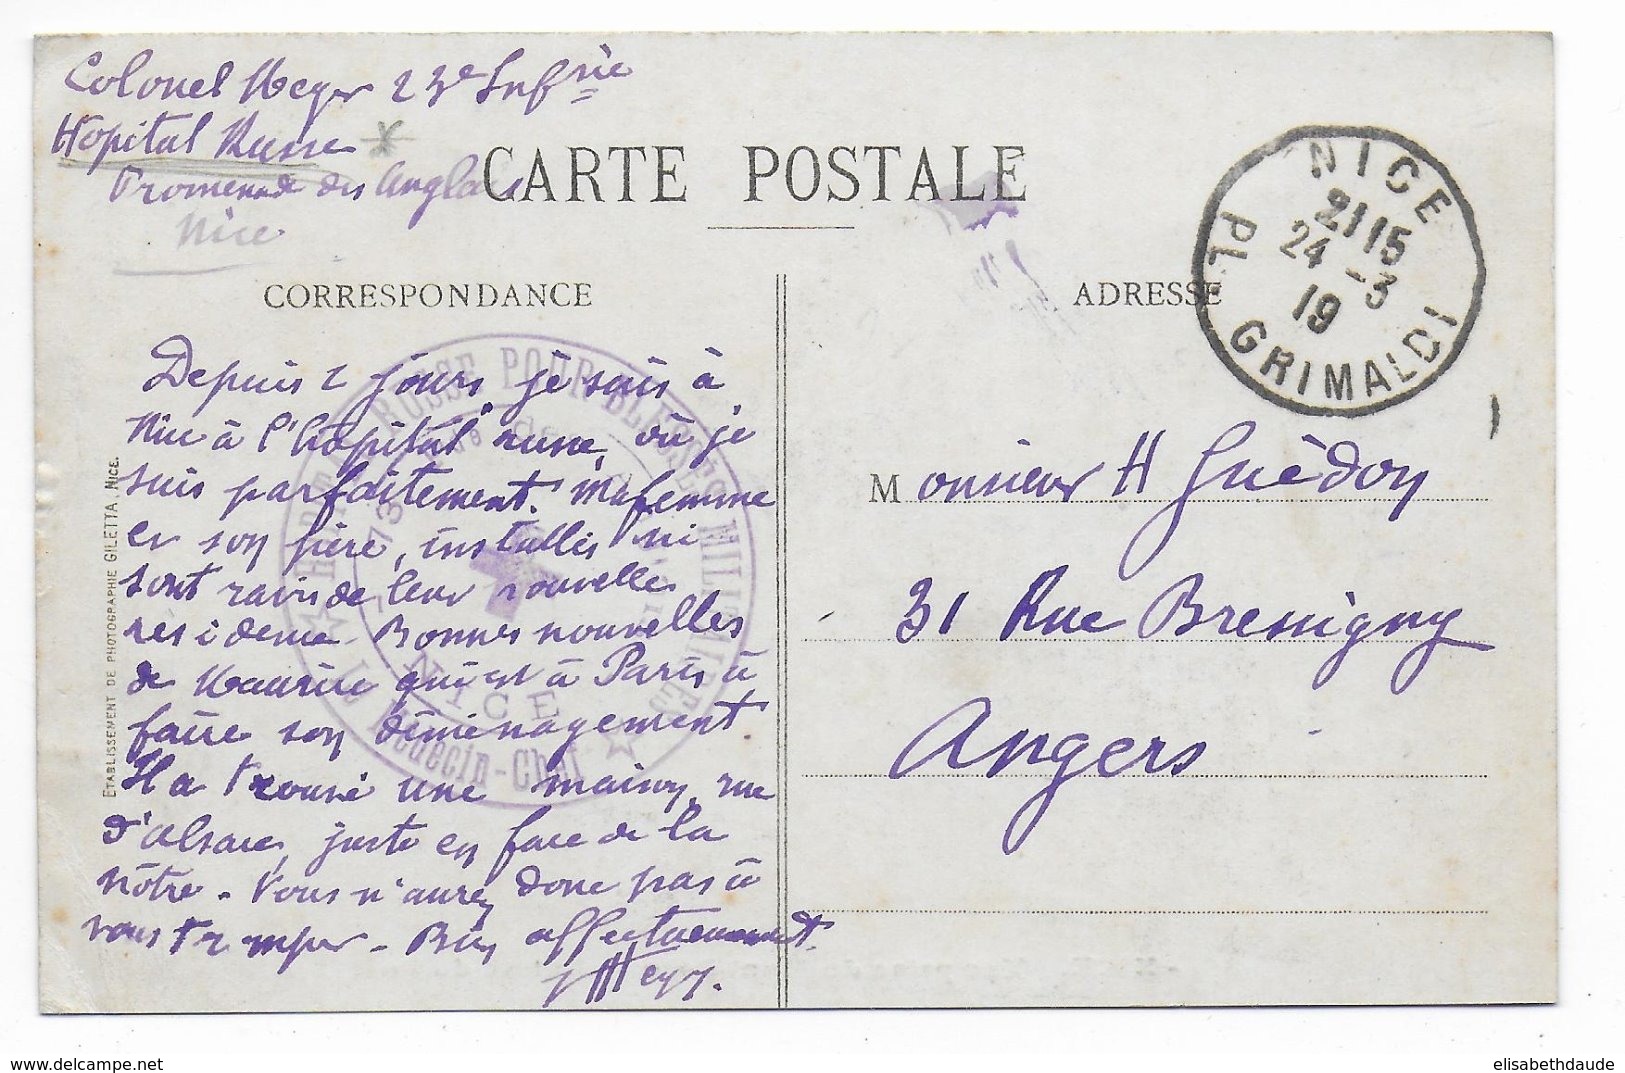 Colonel Meyer 23e Infrie
Hôpital Russe
Promenade des Anglais
Nice
CARTE POSTALE
CORRESPONDANCE
ADRESSE
NICE
PL. GRIMALDI
21 15
24 -3
19
Depuis 2 jours, je suis à
Nice à l'hôpital russe, où je
suis parfaitement. Ma femme
et son père, installés ici
sont ravis de leur nouvelle
résidence. Bonnes nouvelles
de Maurice qui est à Paris à
faire son déménagement
Il a trouvé une maison, rue
d'Alsace, juste en face de la
nôtre. Vous n'aurez donc pas à
vous tromper. Bien affectueusement.
Meyer.
Monsieur H Guédon
31 Rue Bressigny
Angers
HOPITAL RUSSE POUR BLESSÉS MILITAIRES
Le Médecin-Chef
NICE
ETABLISSEMENT DE PHOTOGRAPHIE GILETTA, NICE.
delcampe.net
elisabethdaude